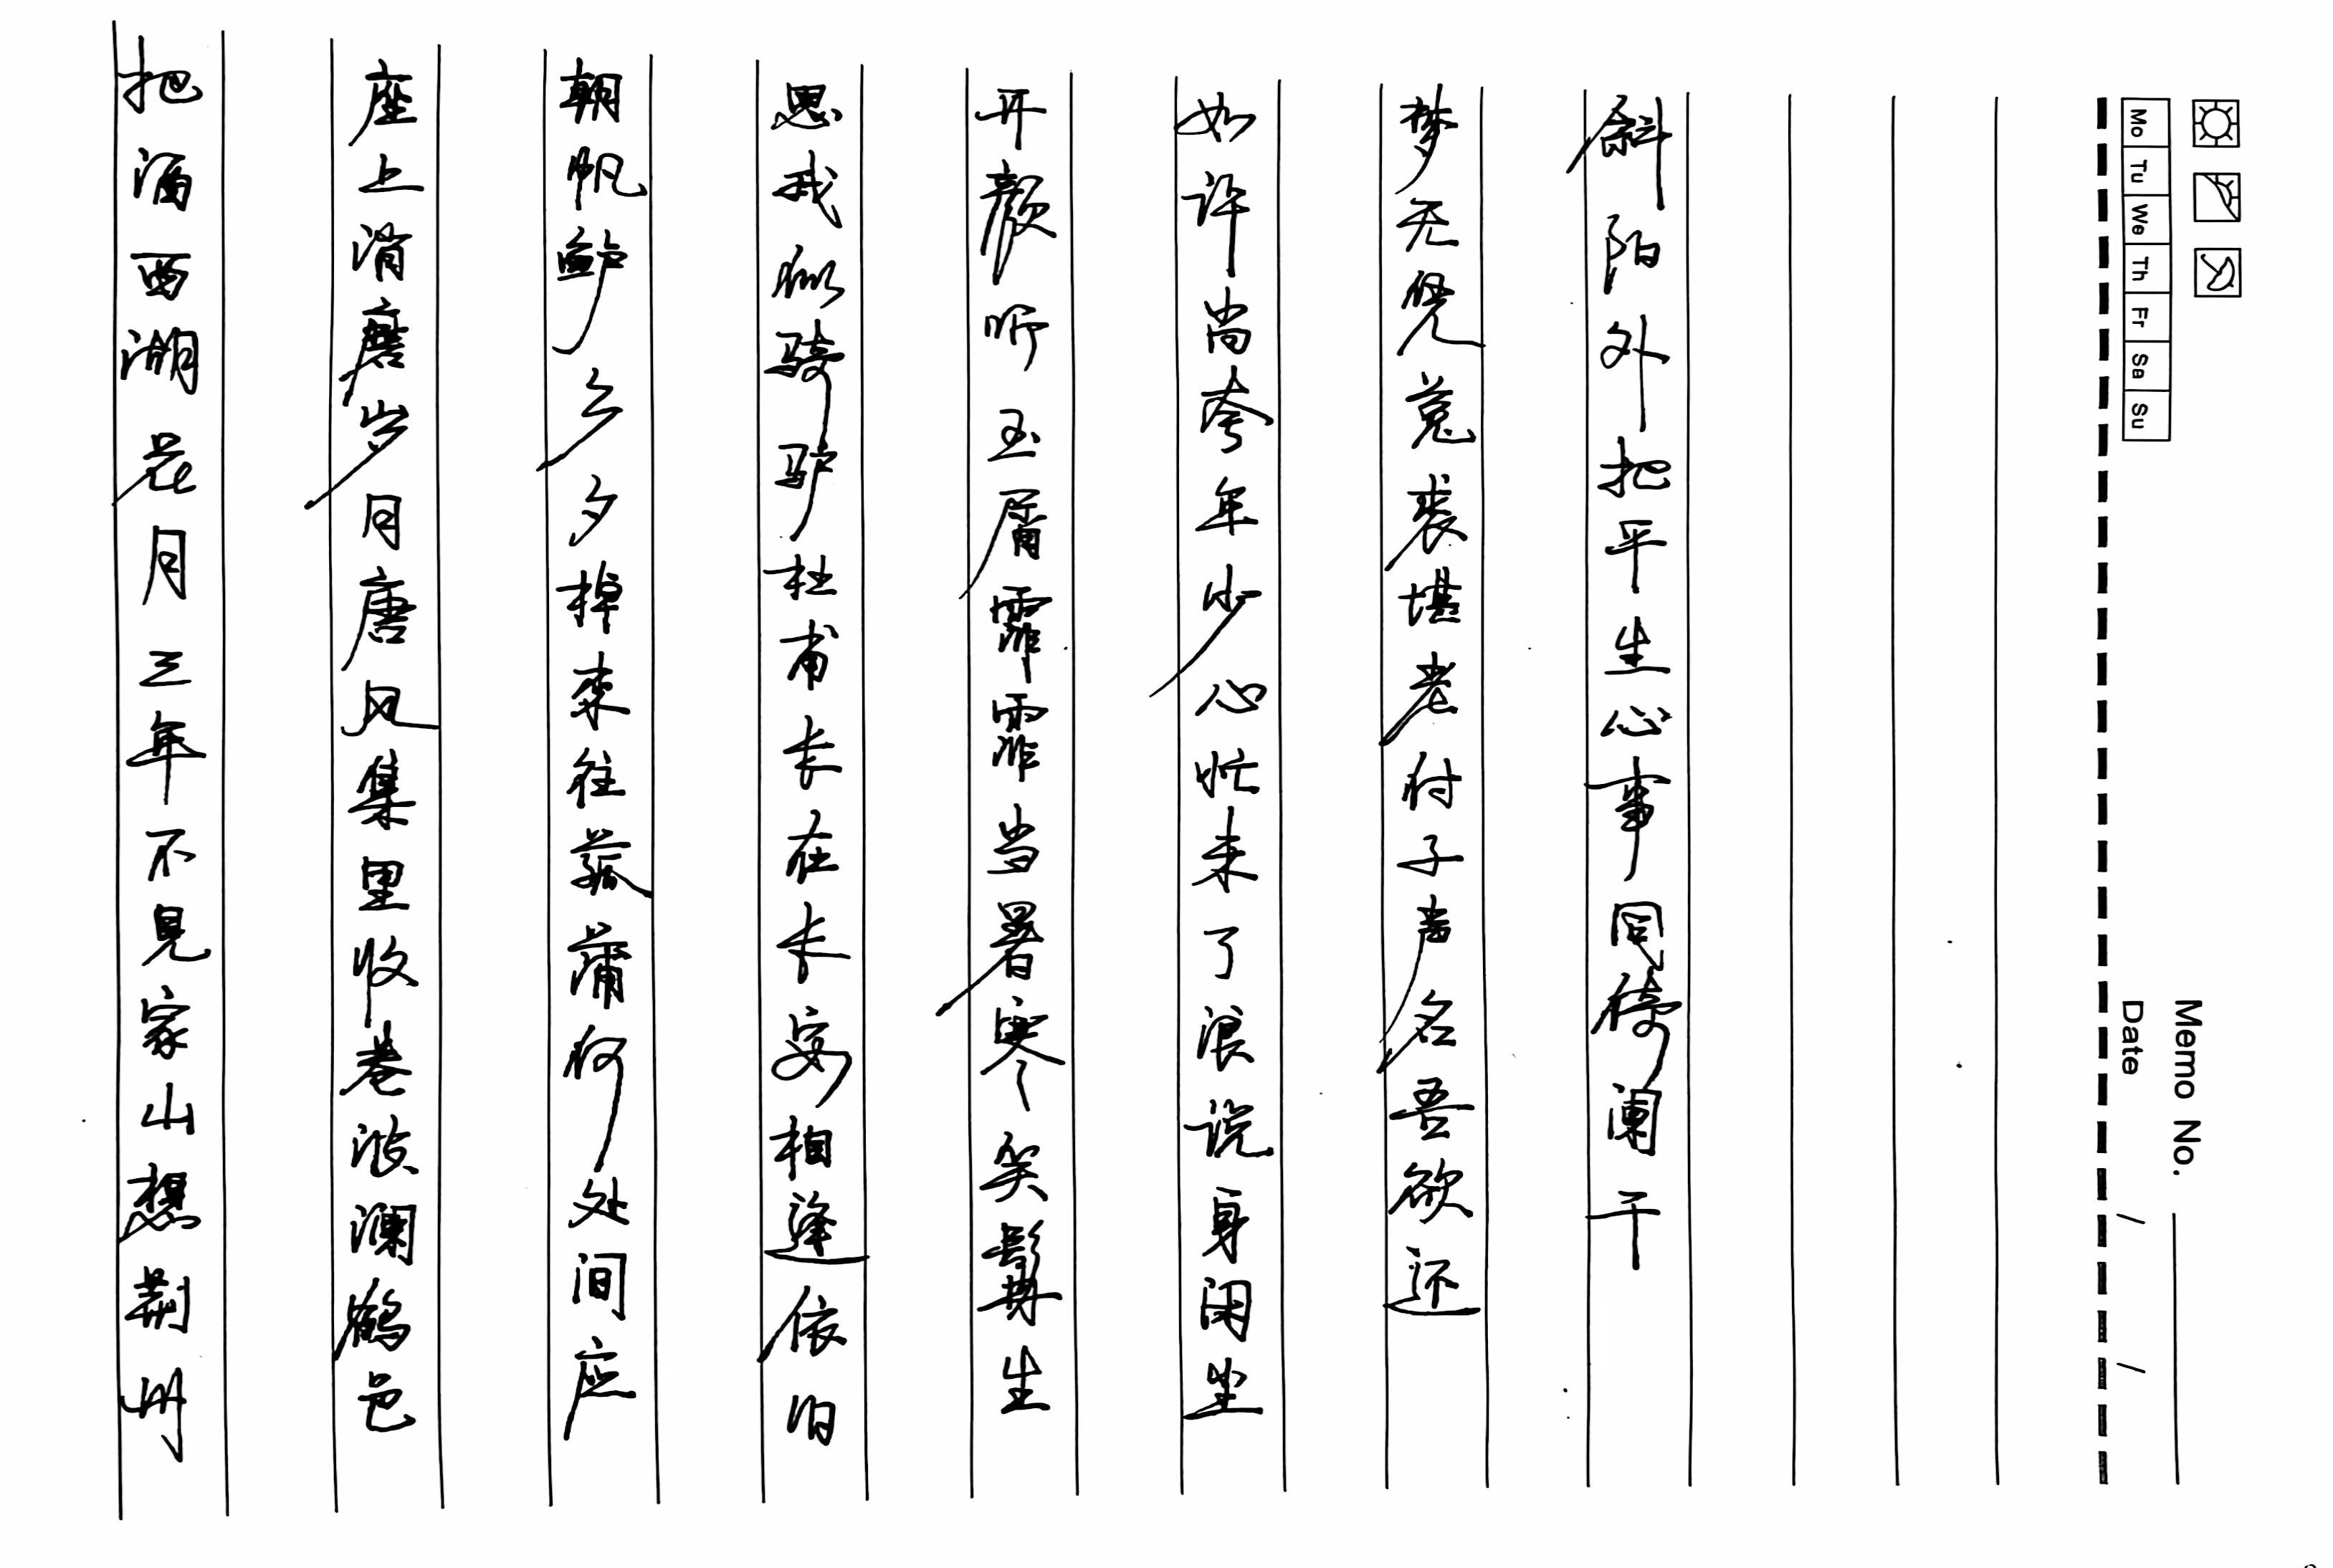 把酒西湖花月三年不見家山想荆州
座上消磨岁月唐风集里收卷波澜鹤邑
朝帆鲈乡夕棹来往菰蒲何处间应
思我似骑驴杜甫长在长安相逢依旧
开颜听玉屑霏霏当暑寒笑鬓生
如许尚夸年少心忙未了浪说身闲坐
梦无凭菟裘堪老付子声名吾欲还
斜阳外把平生心事同倚阑干
Mo Tu We Th Fr Sa Su
Memo No.
Date / /